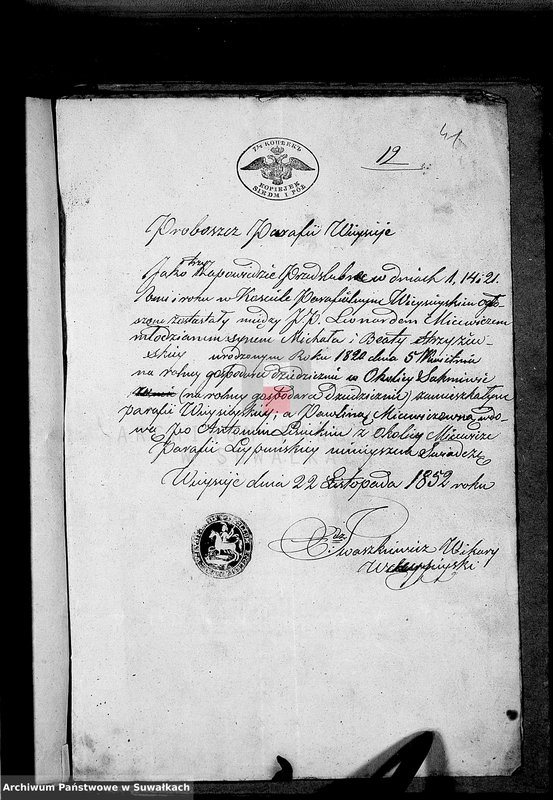 7½ KOPIEJEK
KOPIEJEK
SIEDM I PÓŁ
19
Proboszcz Parafii Wiejsieje
Jako trzy zapowiedzie Przedslubne w dniach 1, 14 i 21.
bm. i roku w Kosciele Parafialnym Wiejsiejskim ogło
szone zostały między J.P. Leonardem Micewiczem
młodzianem synem Michała i Beaty Stryżew-
skiej urodzonym Roku 1820 dnia 5 Kwietnia
na rolny gospodarz dziedziczny w Okolicy
(na rolny gospodara Dziedziczni) zamieszkałym
parafii Wiejsiejskiej; a Pawliną Micewiczowną wdo-
wą po Antonim z Okolicy Micewicze
Parafii niniejszem Swiadczę
Wiejsieje dnia 22 Listopada 1852 roku
X. Iwaszkiewicz Wikary
Wiejsiejski
Archiwum Państwowe w Suwałkach